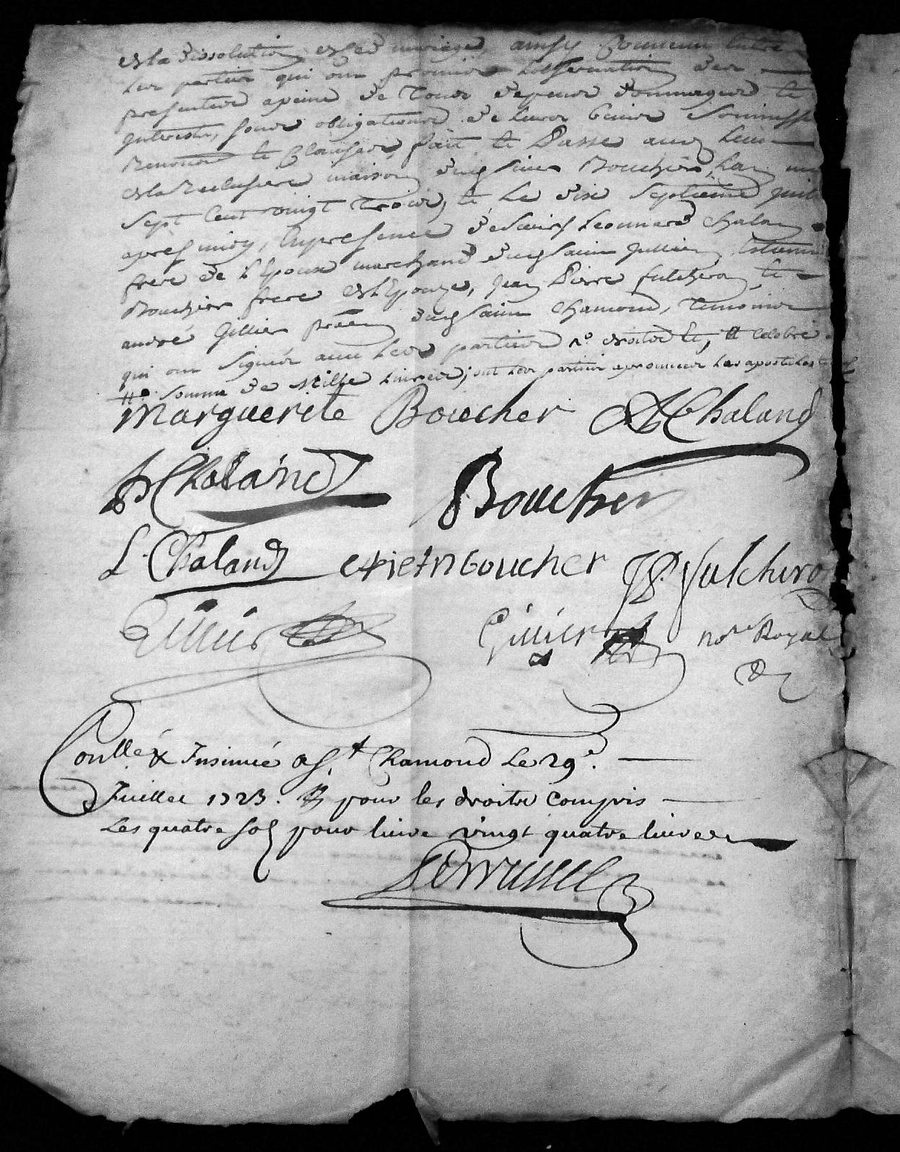 et la dissolution est de mariage, ainsy convenu entre
les parties qui ont promis l'observation des
presentes a peine de tous depens dommages et
interests, sous obligations de leurs biens soumissi
Renonce et Clauses, fait et Passé aud lieu
de la maison dud sieur Bouchier, Lan mil
Sept Cent vingt Trois, et Le dix Septieme Juil
apres midy, En presence de Sieurs Leonnard Chaland
frere de l'Epoux marchand dud Saint Jullien, Estienne
Bouchier frere de l'Epouze, Jean Pierre fulchiron et
andré Gillier dud Saint Chamond, temoins
qui ont Signés avec Les parties
Somme de Mille Livres, ont les parties aprouver les apostilles
Marguerite Boucher Chaland
Chaland Boucher
L. Chaland etietn boucher JP. fulchiro
Gillier Gillier nore Royal
Conllé & Insinué a St. Chamond Le 29e.
Juillet 1723. pour les droits compris
Les quatre sol pour livre vingt quatre livres